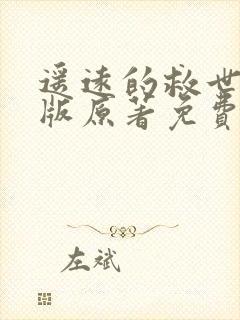 遥远的救世
版原著免費
左斌